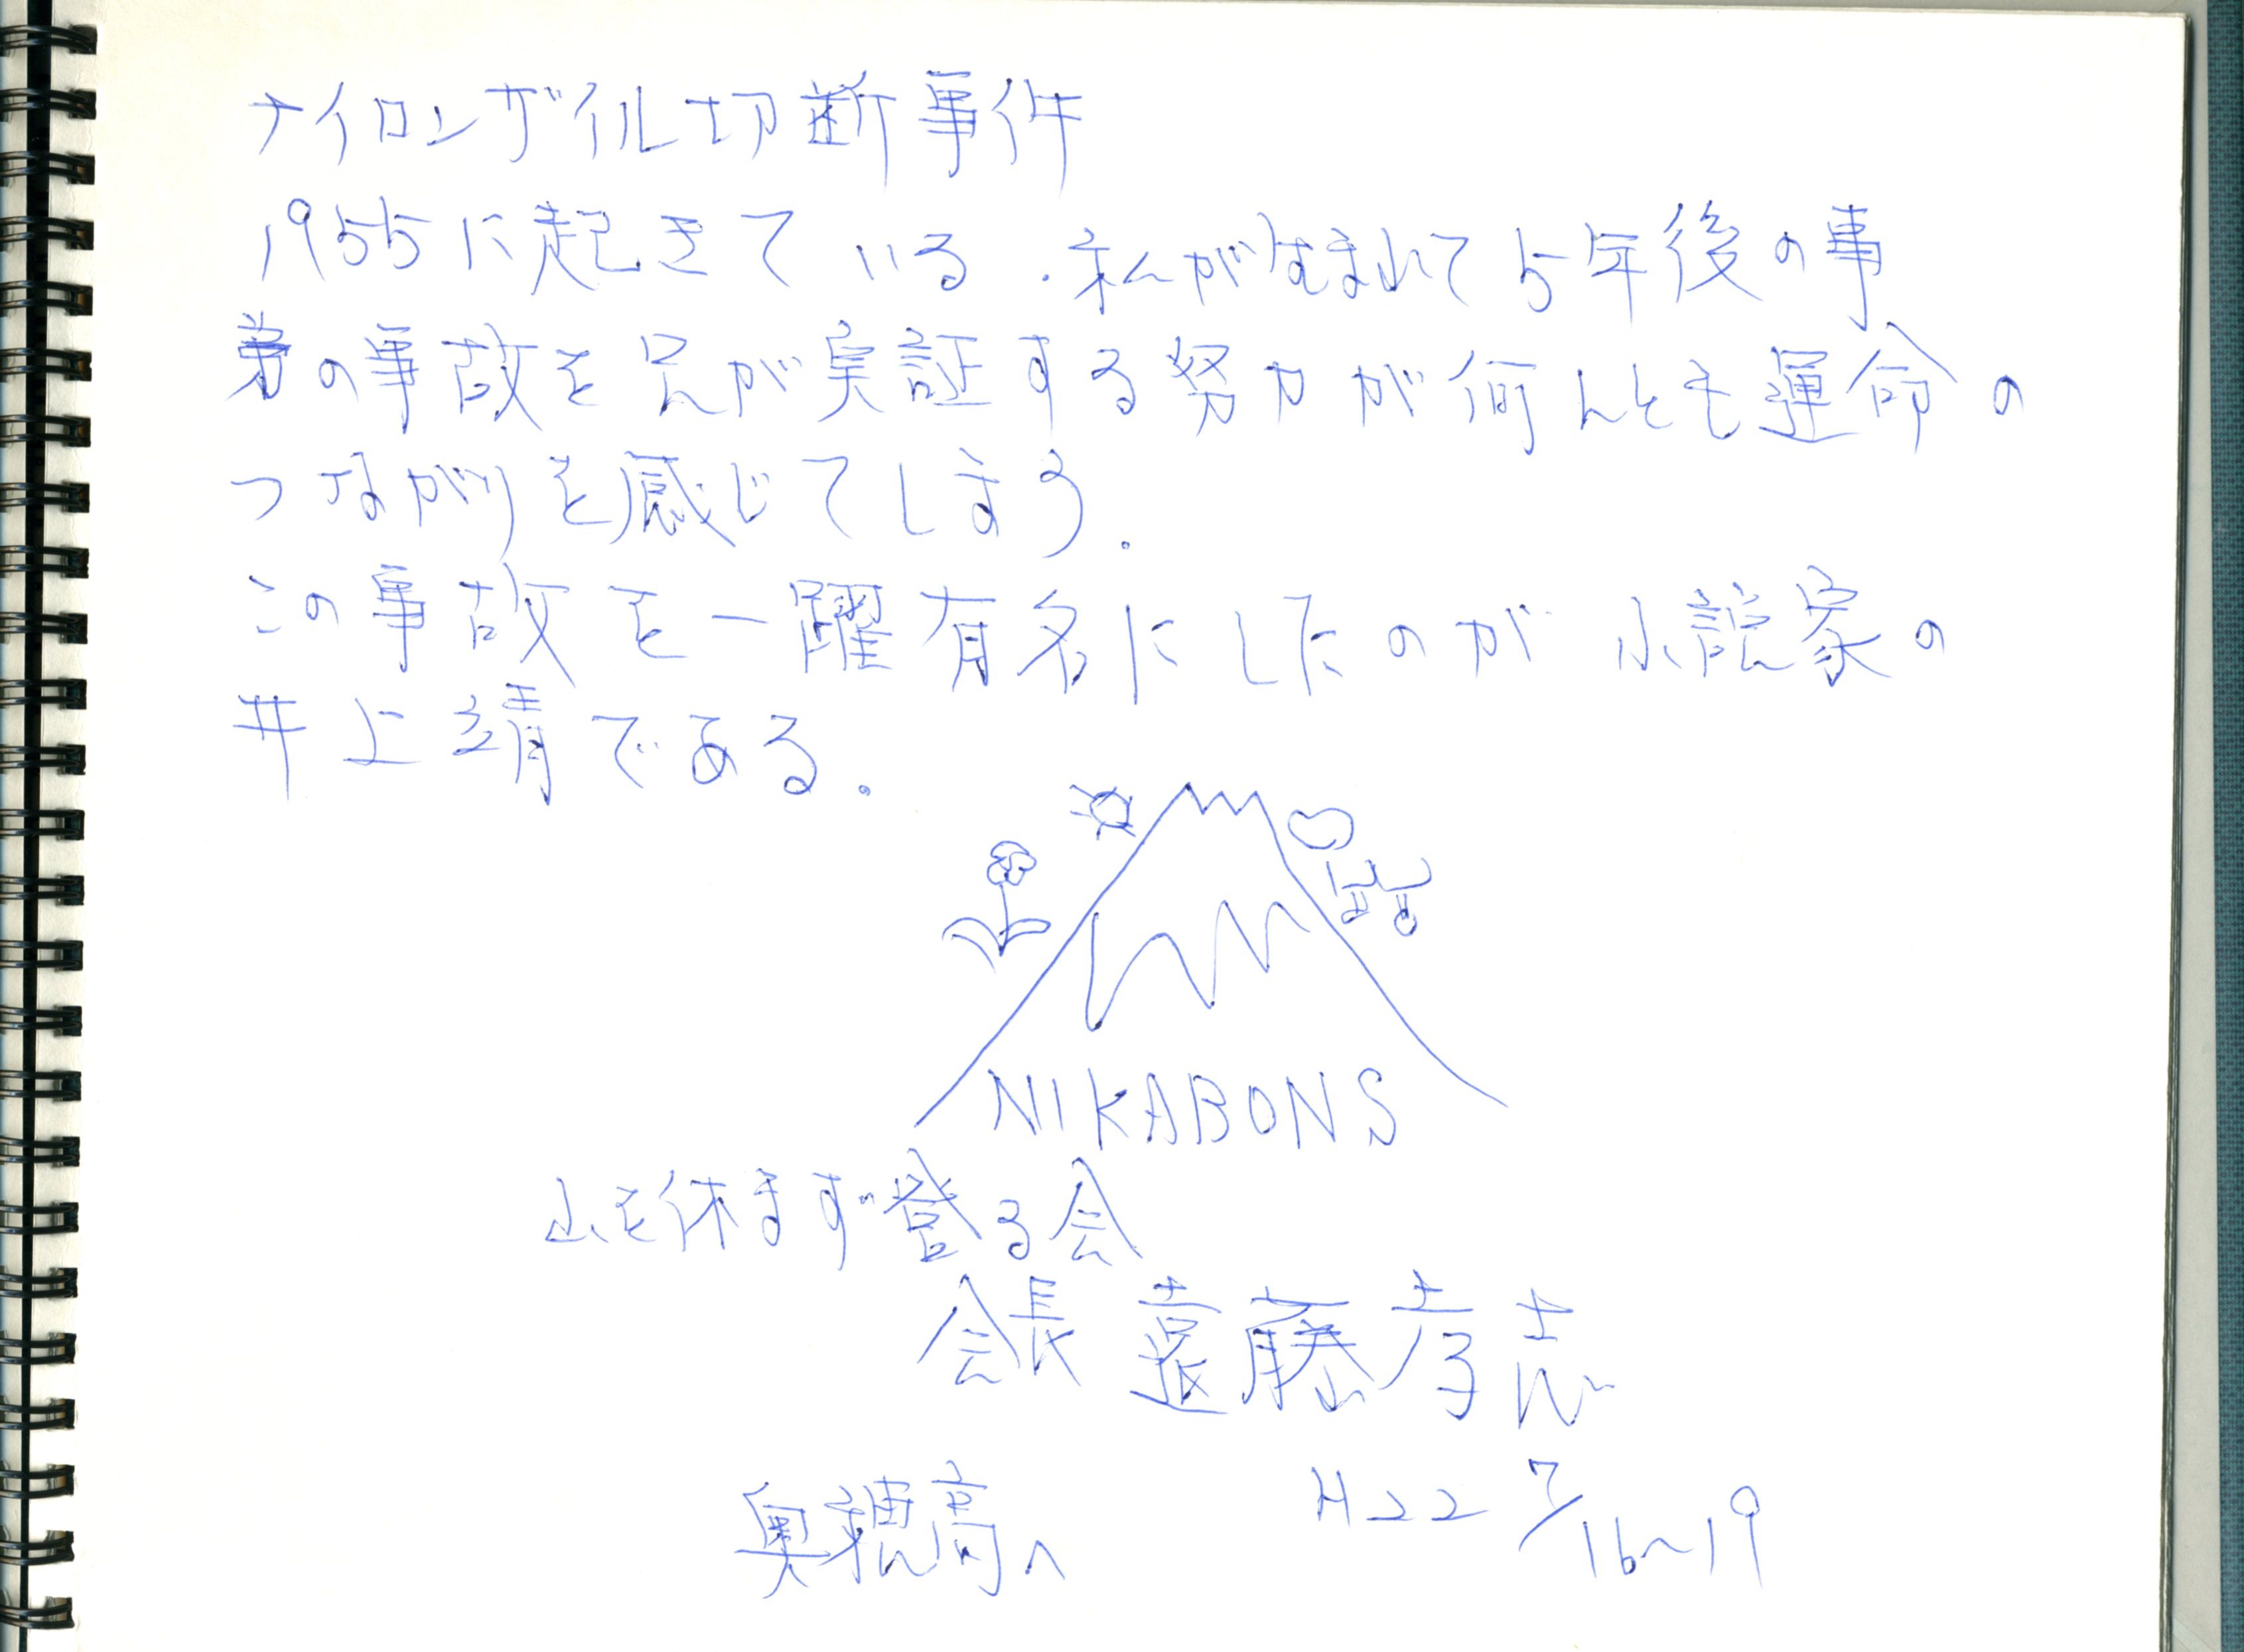 ナイロンザイル切断事件
1955に起きている.私が生まれて5年後の事
弟の事故を兄が実証する努力が何んとも運命の
つながりを感じてしまう.
この事故を一躍有名にしたのが小説家の
井上靖である.
NIKABONS
山を休まず登る会
会長 遠藤孝志
奥穂高へ H22 7/16~19